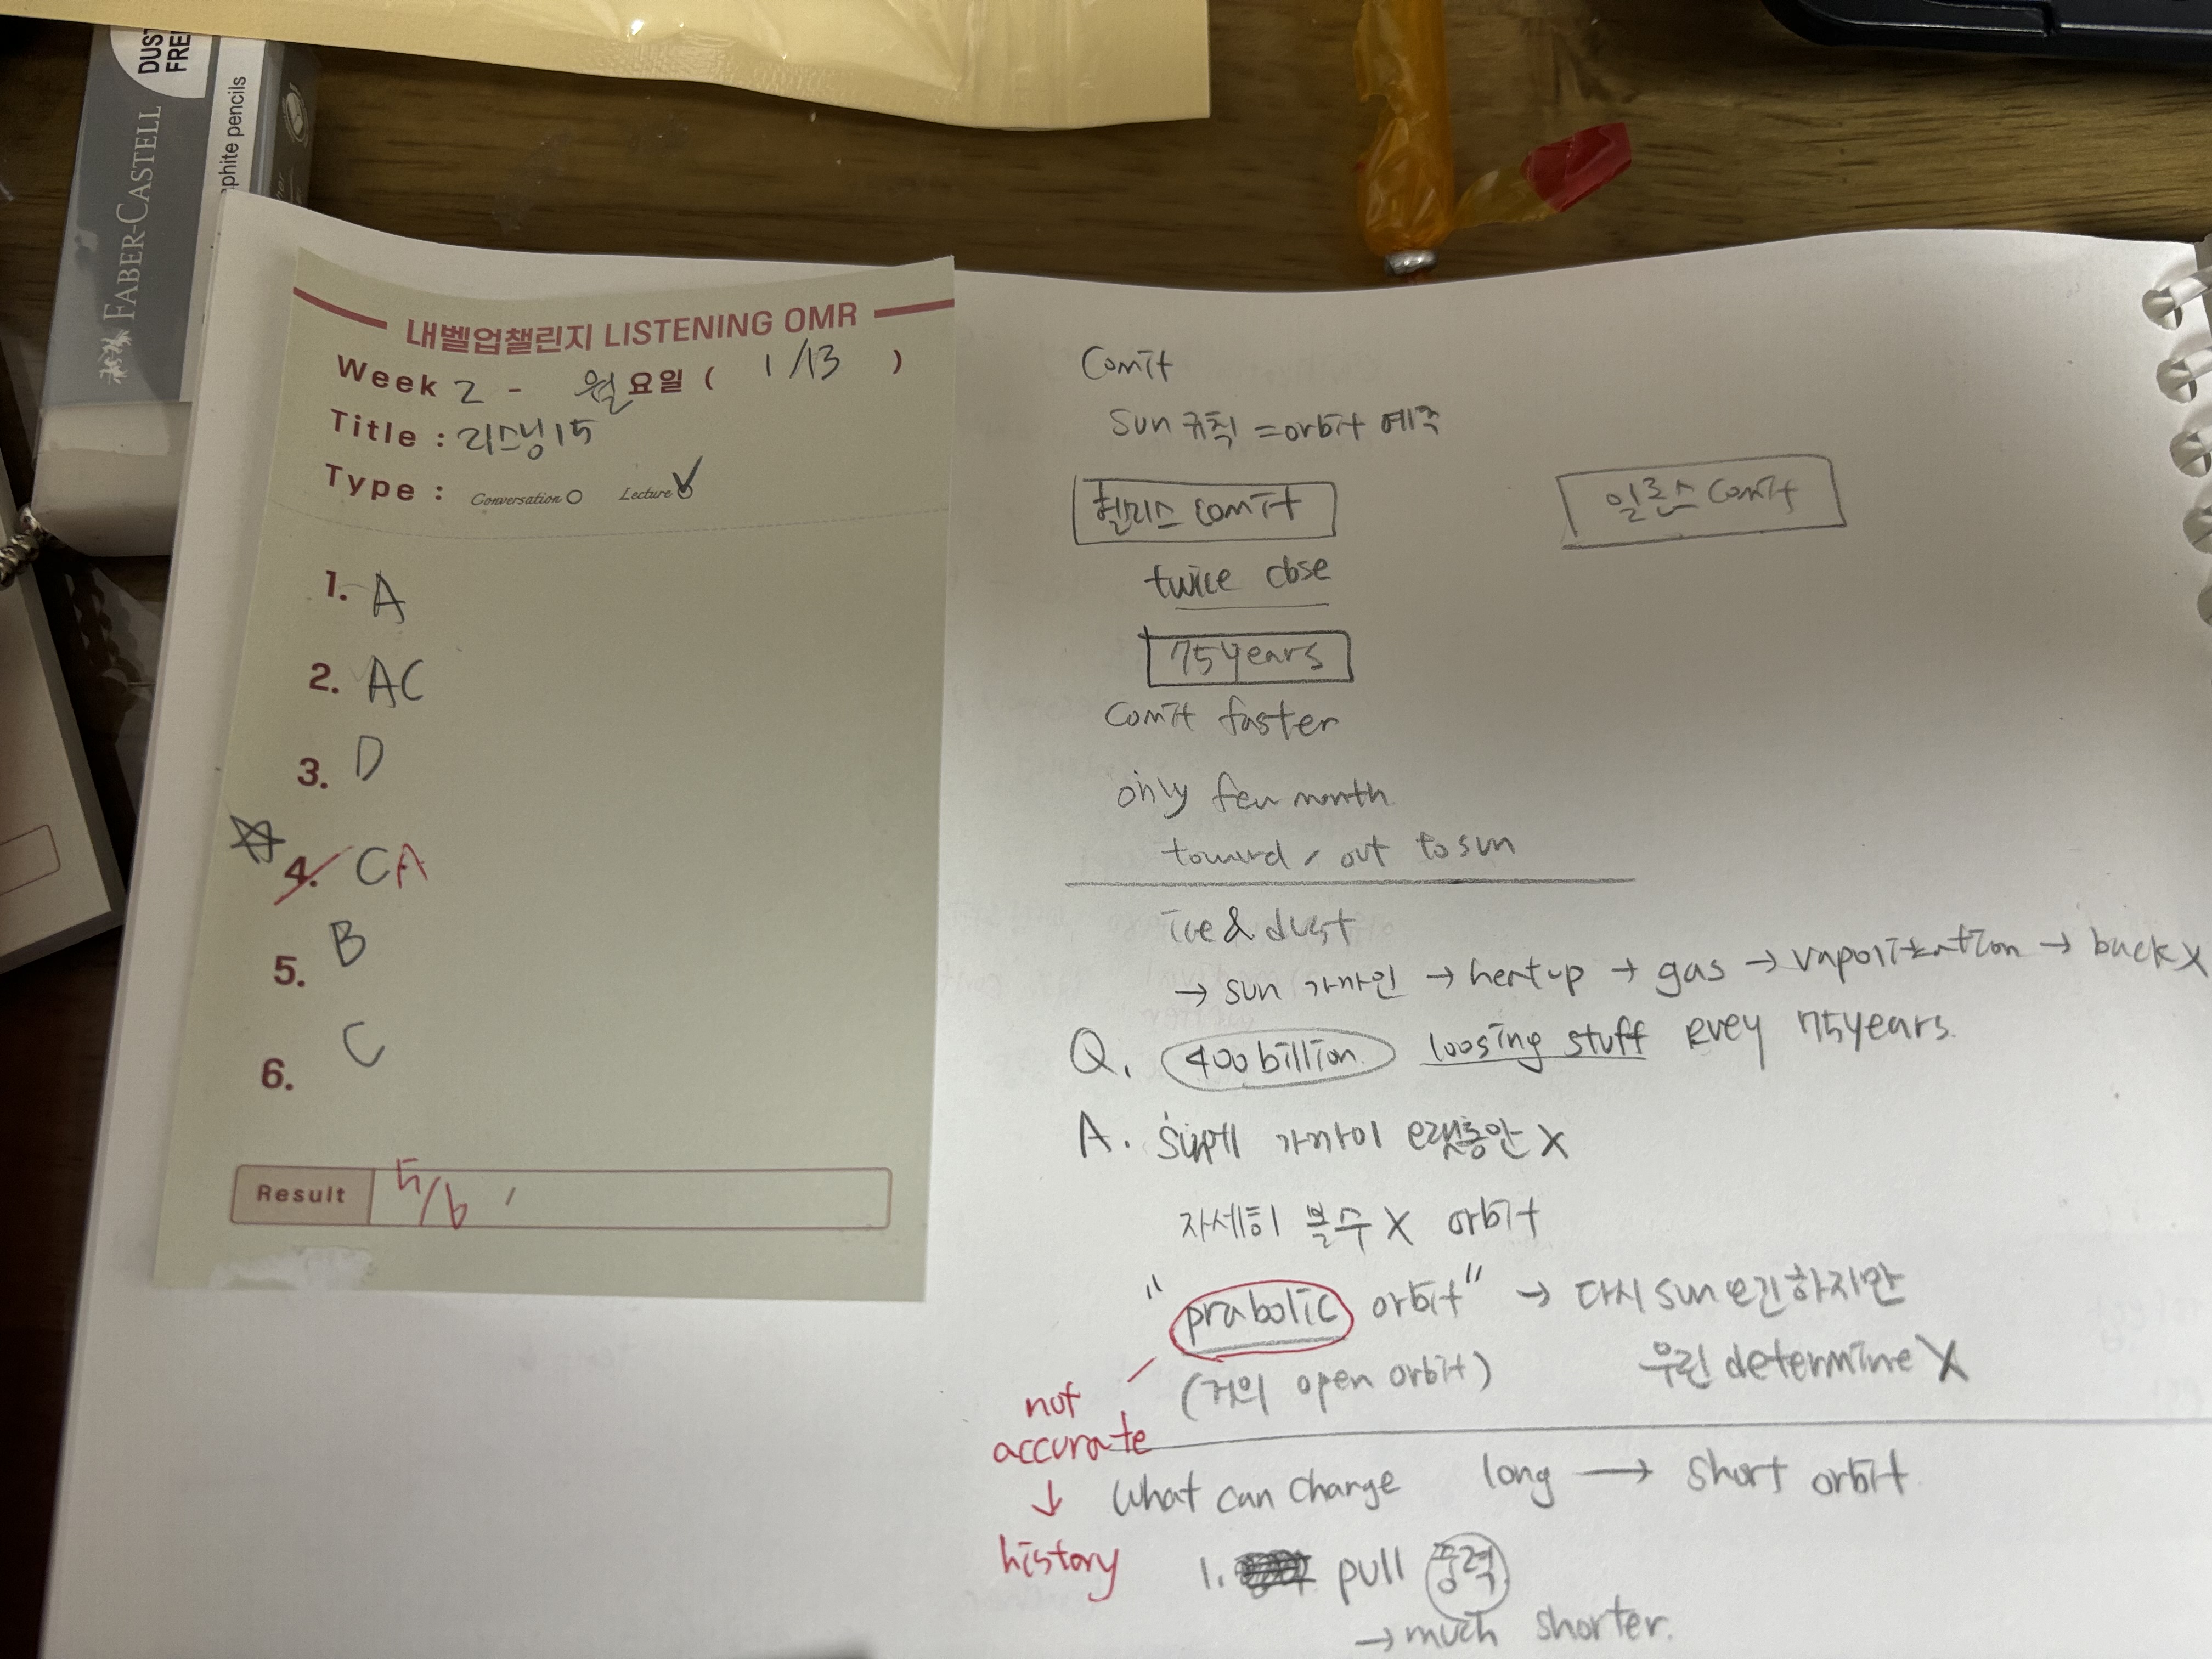 DUST
FREE
FABER-CASTELL
phite pencils
내벨업챌린지 LISTENING OMR
Week 2 - 월요일 ( 1/13 )
Title : 리스닝15
Type : Conversation Lecture
1. A
2. AC
3. D
4. CA
5. B
6. C
Result 5/6
Comit
Sun 규칙 = orbit 예측
헬리스 comit
일론스 comit
twice close
75years
Comit faster
only few month
toward / out to sun
ice & dust
→ sun 가까인 → heat up → gas → vaporization → back X
Q. 400 billion loosing stuff evey 75years.
A. sun에 가까이 오랫동안 X
자세히 볼수 X orbit
"prabolic orbit" → 다시 sun 오긴하지만
(거의 open orbit) 우린 determine X
not
accurate
↓
history
What can change long → short orbit
1. pull 중력
→ much shorter.